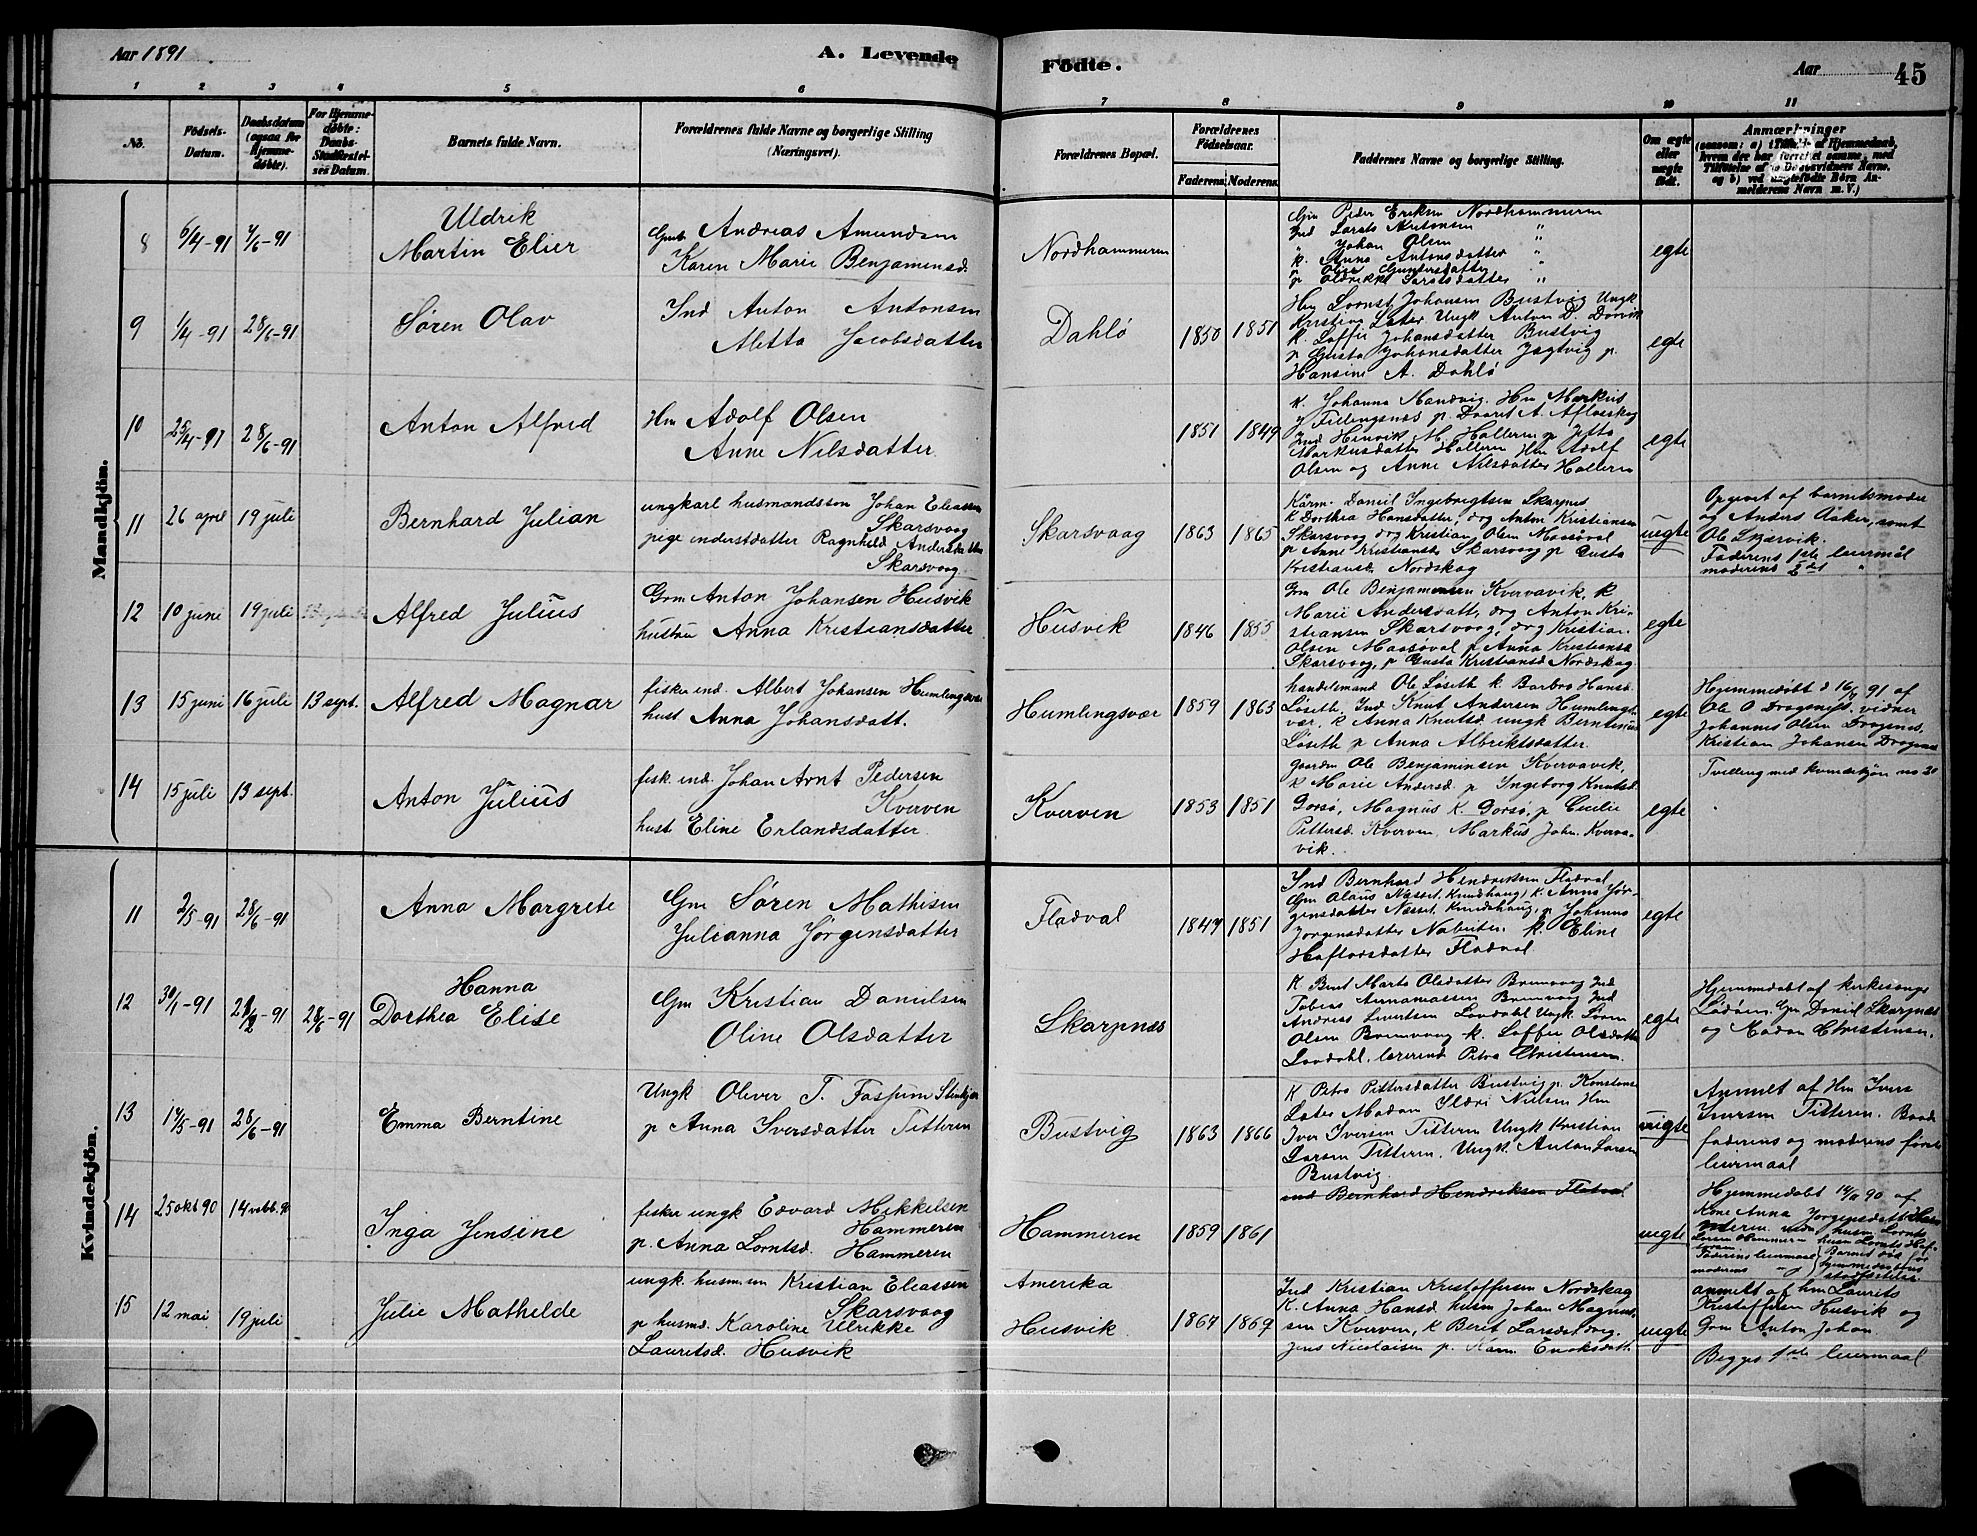 Aar 1891
A. Levende
Födte.
Aar
45
1 2 3 4 5 6 7 8 9 10 11
No.
Födsels-Datum.
Daabsdatum (ogsaa for Hjemmedöbte).
For Hjemmedøbte: Daabs-Stadfæstelses Datum.
Barnets fulde Navn.
Forældrenes fulde Navne og borgerlige Stilling
(Næringsvei).
Forældrenes Bopæl.
Forældrenes Fødselsaar.
Faderens. Moderens.
Faddernes Navne og borgerlige Stilling.
Om ægte eller uægte født.
Anmærkninger
(saasom: a) i Tilfælde af Hjemmedaab, hvem der har forrettet samme, med Tilføielse af to Daabsvidners Navne, og b) ved uægtefödte Börn Anmelderens Navn m. V.)
Mandkjön.
8 6/4-91 7/6-91
Uldrik
Martin Elier
Gmb Andreas Amundsen
Karen Marie Benjaminsd.
Nordhammeren
Gm Peder Eriksen Nordhammeren
Ind Lorents Antonsen "
" Johan Olsen "
k. Anna Antonsdatter "
p Oline Gundersdatter "
p Oldrikke Larsdatter "
egte
9 1/4-91 28/6-91
Søren Olav
Ind Anton Antonsen
Aletta Jacobsdatter
Dahlö
1850 1851
Hm Lornst Johansen Bustvig Ungk
Kristian Later Ungk Anton D. Dorvik
k. Loffie Johansdatter Bustvig
p Gusta Johansdatter Jægtvig p.
Hansine A. Dahlö
egte
10 25/4-91 28/6-91
Anton Alfred
Hm Adolf Olsen
Anne Nilsdatter
1851 1849
k. Johanna Mandvig. Hm Markus
Fillingsnæs p. Daaret A. Aflverskog
Ind Henrik M. Halleren p Jetta
Markusdatter Halleren Hm Adolf
Olsen og Anne Nilsdatter Halleren
egte
11 26 april 19 juli
Bernhard Julian
ungkarl husmandssøn Johan Eleassen
Skarsvaag
pige inderstdatter Ragnhild Andersdatter
Skarsvaag
Skarsvaag
1863 1865
Karm. Daniel Ingebrigtsen Skarpnes
k Dorthea Hansdatter, drg Anton Kristiansen
Skarsvaag drg Kristian Olsen Maasöval
p Anne Kristiansd. Skarsvaag p Gusta
Kristiansd. Nordskag
uegte
Opgivet af barnets moder
og Anders Aaker, samt
Ole Skjærvik.
Faderens 1ste leiermål
moderens 2det "
12 10 juni 19 juli
Alfred Julius
Grm Anton Johansen Husvik
hustru Anna Kristiansdatter
Husvik
1846 1855
Gm Ole Benjaminsen Kvervavik, k
Marie Andersdatt, drg Anton Kri-
stiansen Skarsvaag, drg Kristian
Olsen Maasöval p Anna Kristiansd.
Skarsvaag, p Gusta Kristiansd Nordskag
egte
13 15 juni 16 juli 13 sept.
Alfred Magnar
fisker ind. Albert Johansen Humlingsvær
hust Anna Johansdatt.
Humlingsvær
1859 1863
handelsmand Ole Løseth k. Barbro Hansd.
Löseth, Ind Knut Andersen Humlings-
vær, k Anna Knutsd. ungk Berntinius
Löseth p Anna Albriktsdatter.
egte
Hjemmedöbt d 16/7 91 af
Ole O Dragsnes, vidner
Johannes Olsen Dragsnes,
Kristian Johansen Dragsnes
14 15 juli 13 sept.
Anton Julius
fisk. ind. Johan Arnt Pedersen
Kverven
hust Eline Erlandsdatter.
Kverven
1853 1851
gaardm Ole Benjaminsen Kvervavik,
k Marie Andersd. p Ingeborg Knutsd.
Dorsø, Magnus K. Dorsø, p Cecilie
Pettersd. Kverven, Markus Joh. Kverva-
vik.
egte
Tvilling med kvindekjön no 20
Kvindekjön.
11 2/5-91 28/6-91
Anna Margrete
Gm Søren Mathisen
Julianna Jörgensdatter
Fladval
1847 1851
Ind Bernhard Hendriksen Fladval
Gm Olaus Næsset, Knudshaug, k. Anna Jör-
gensdatter Næsset Knudshaug, p Johanna
Jorgensdatter Nabeita. k. Eline
Haftorsdatter Fladval
egte
12 30/1-91 28/2-91 28/6-91
Hanna
Dorthea Elise
Gm Kristian Danielsen
Oline Olsdatter
Skarpnæs
K Berit Marta Olsdatter Bremvaag Ind
Tobias Annanassen Bremvaag Ind
Andreas Sivertsen Lovdahl Ungk Søren
Olsen Bremvaag k. Loffie Olsdatter
Lovdahl. lærerind Petra Christensen.
egte
Hjemmedøbt af kirkesanger
Lødøen. Gm Daniel Skarpnæs
og Madam Christensen.
13 14/5-91 28/6-91
Emma Berntine
Ungk Oliver T. Fossum Stenkjær
p Anna Iversdatter Titteren
Bustvig
1863 1866
K Petra Pettersdatter Bustvig p. Konstanse
Later Madam Nielsen Hm
Iver Iversen Titteren Ungk Kristian
Larsen Titteren. Ungk. Anton Larsen
Bustvig
ind Bernhard Hendriksen Fladval
uegte
Anmelt af Hm Ivers
Iversen Titteren. Baade
faderens og moderens første
leiermaal
14 25 okt 90 14 novb. 90
Inga Jensine
fisker ungk Edvard Mikkelsen
Hammeren
p. Anna Lorntsd. Hammeren
Hammeren
1859 1861
uegte
Hjemmedøbt 14/11 90 af
Kone Anna Jorgensdatt Ham-
meren vidner husm Lornts
Larsen Hammeren husm Lornts Haf-
Faderens leiermaal Barnet død før
moderens " hjemmedaabens
stadfæstelse.
15 12 mai 19 juli
Julie Mathilde
ungk. husm.søn Kristian Eleassen
Skarsvaag
p husmd. Karoline Ulrikke
Lauritsd. Husvik
Amerika
Husvik
1867 1869
Ind Kristian Kristoffersen Nordskag
K. Anna Hansd. husm Johan Magnus-
sen Kverven, k Berit Larsdat drg.
Jens Nicolaisen p. Karn. Enoksdatt.
uegte
anmelt af hm Laurits
Kristoffersen Husvik og
Grm Anton Johan.
Begges 1ste leiermaal